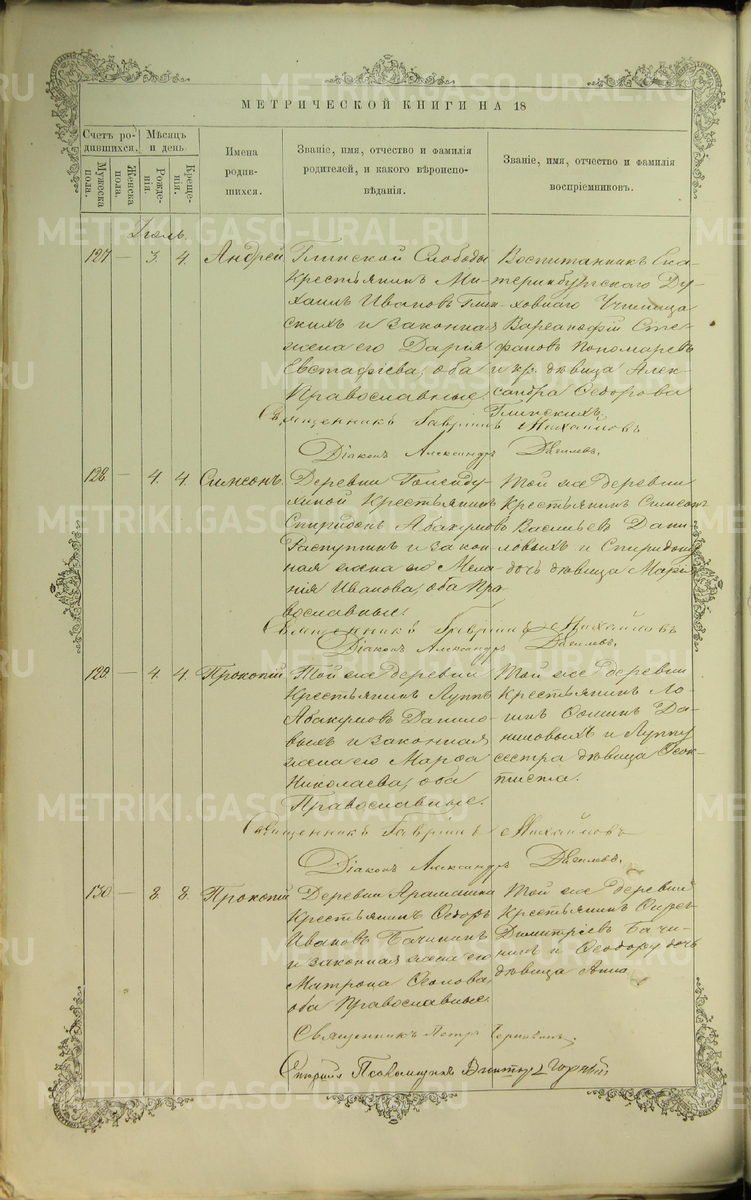 МЕТРИЧЕСКОЙ КНИГИ НА 18
Счетъ ро-
дившихся.
Мѣсяцъ
и день
Мужеска
пола.
Женска
пола.
Рожде-
нія.
Креще-
нія.
Имена
родив-
шихся.
Званіе, имя, отчество и фамилія
родителей, и какого вѣроиспо-
вѣданія.
Званіе, имя, отчество и фамилія
воспріемниковъ.
Іюль.
127 — 3. 4. Андрей
Глинской Слободы
Крестьянинъ Ми-
хаилъ Ивановъ Глин-
скихъ и законная
жена его Дарья
Евстафіева, оба
Православные.
Воспитанникъ Ека-
теринбургскаго Ду-
ховнаго Училища
Варсанофій Сте-
фановъ Пономаревъ
и кр. дѣвица Алек-
сандра Ѳедорова
Глинскихъ.
Священникъ Гавріилъ Михайловъ
Діаконъ Александръ
128 — 4. 4. Симеонъ.
Деревни Голенду-
хиной Крестьянинъ
Спиридонъ Абакумовъ
Распутинъ и закон-
ная жена его Мела-
нія Иванова, оба Пра-
вославные.
Той же деревни
Крестьянинъ Симеонъ
Васильевъ Дани-
ловыхъ и Спиридона
дочь дѣвица Марія
Священникъ Гавріилъ Михайловъ
Діаконъ Александръ
129. — 4. 4. Прокопій
Той же деревни
Крестьянинъ Луппъ
Абакумовъ Данило-
выхъ и законная
жена его Марѳа
Николаева, оба
Православные.
Той же деревни
Крестьянинъ Ло-
гинъ Ѳоминъ Да-
ниловыхъ и Луппу
сестра дѣвица Ѳеок-
тиста.
Священникъ Гавріилъ Михайловъ
Діаконъ Александръ
130 — 8. 8. Прокопій
Деревни Арамашка
Крестьянинъ Ѳедоръ
Ивановъ Бачининъ
и законная жена его
Матрона
оба Православные.
Той же деревни
Крестьянинъ
Димитріевъ Бачи-
нинъ и Ѳеодору дочь
дѣвица Анна
Священникъ Петръ
Псаломщикъ
METRIKI.GASO-URAL.RU